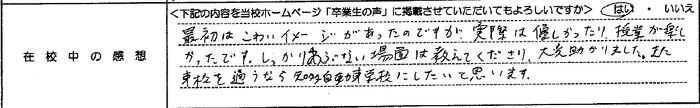 <下記の内容を当校ホームページ「卒業生の声」に掲載させていただいてもよろしいですか> はい ・ いいえ
在校中の感想
最初はこわいイメージがあったのですが、実際は優しかったり、授業が楽し
かったです。しっかりあぶない場面は教えてくださり、大変助かりました。また
車校を通うなら 知多自動車学校にしたいと思います。